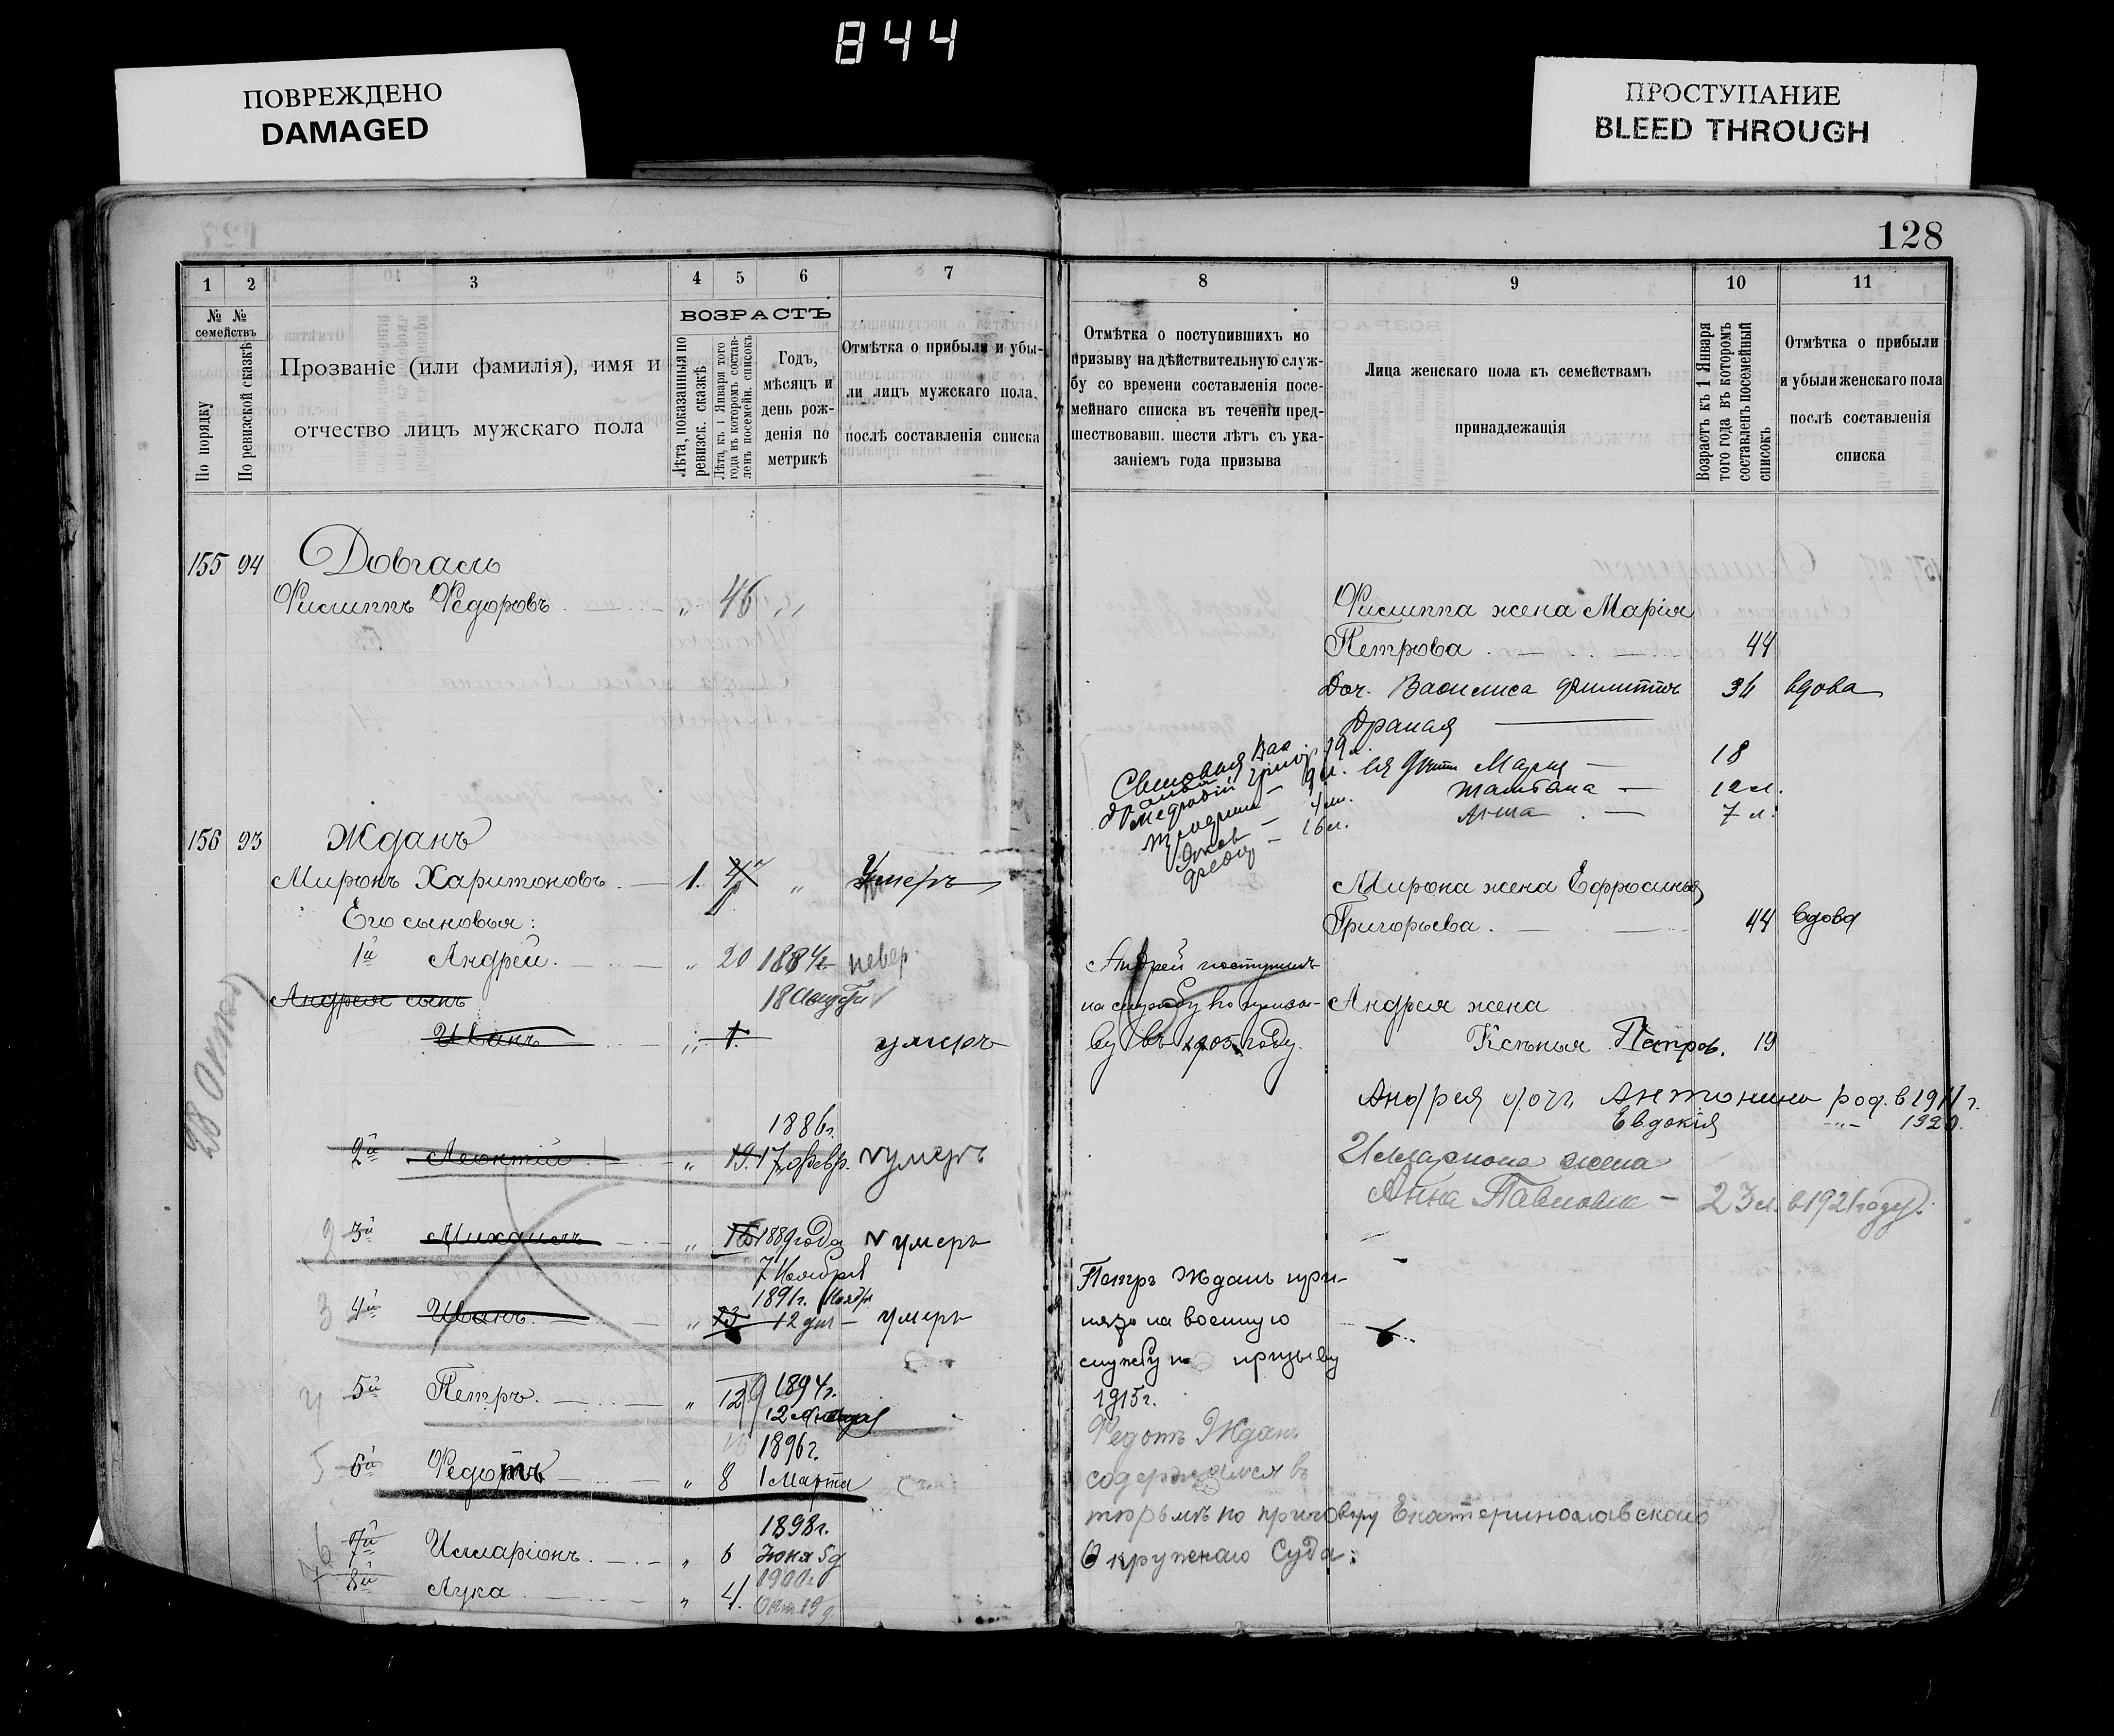 844
ПОВРЕЖДЕНО
DAMAGED
ПРОСТУПАНИЕ
BLEED THROUGH
128
1 2 3 4 5 6 7
№ № семействъ
По порядку
По ревизской сказкѣ
Прозваніе (или фамилія), имя и
отчество лицъ мужскаго пола
ВОЗРАСТЪ
Лѣта, показанныя по
ревизск. сказкѣ
Лѣта, къ 1 Января того
года въ котором состав-
ленъ посемейн. списокъ
Годъ,
мѣсяцъ и
день рож-
денія по
метрикѣ
Отмѣтка о прибыли и убы-
ли лицъ мужскаго пола,
послѣ составленія списка
155 94 Довгаль
Филиппъ Федоровъ „ 46 „
156 93 Жданъ
Миронъ Харитоновъ 1. „ Умеръ
Его сыновья:
1й Андрей „ 20 1884г
18 Августа
Андрея сынъ
Иванъ „ 1. умеръ
28 Октяб
1886г.
2й Леонтій „ 19. 17 февр. умеръ
2 3й Михаилъ „ 16 1889 года умеръ
7 Ноября
1891г. Ноябр
3 4й Иванъ „ 13 12 дня умеръ
1894г.
4 5й Петръ „ 12
12 Января
1896г.
5 6й Федотъ „ 8 1 Марта
1898г.
6 7й Илларіонъ „ 6 Іюня 5д
1900г
7 8й Лука „ 4. Окт 19 д
8 9 10 11
Отмѣтка о поступившихъ по
призыву на дѣйствительную служ-
бу со времени составленія посе-
мейнаго списка въ теченіи пред-
шествовавш. шести лѣтъ съ ука-
заніемъ года призыва
Лица женскаго пола къ семействамъ
принадлежащія
Возрастъ къ 1 Января
того года въ которомъ
составленъ посемейный
списокъ
Отмѣтка о прибыли
и убыли женскаго пола
послѣ составленія
списка
Филиппа жена Марія
Петрова 44
Доч. Василиса Филиппов 36 вдова
Драная
ея дѣти Мария 18
Татьяна 12 л.
Анна 7 л.
Сыновья Вас. 19 л.
Григор 9 л.
Яков
Федор 16 л.
Мирона жена Ефросинья
Григорьева 44 вдова
Андрей поступилъ
на службу по призы-
ву въ 1905 году.
Андрея жена
Ксенья Петров. 19
Андрея доч. Антонина род. в 1911 г.
Евдокія -„- 1920.
Илларіона жена
Анна Павловна — 23 л. в 1921 году.
Петръ Жданъ при-
нятъ на военную
службу по призыву
1915 г.
Федотъ Жданъ
содержался въ
тюрьмѣ по приговору Екатеринославскаго
Окружнаго Суда.